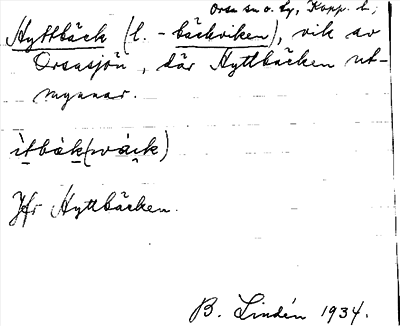 Orsa sn o. tg, Kopp. l.;
Hyttbäck (l. -bäckviken), vik av
Orsasjön, där Hyttbäcken ut-
mynnar.
Jfr Hyttbäcken.
B. Lindén 1934.